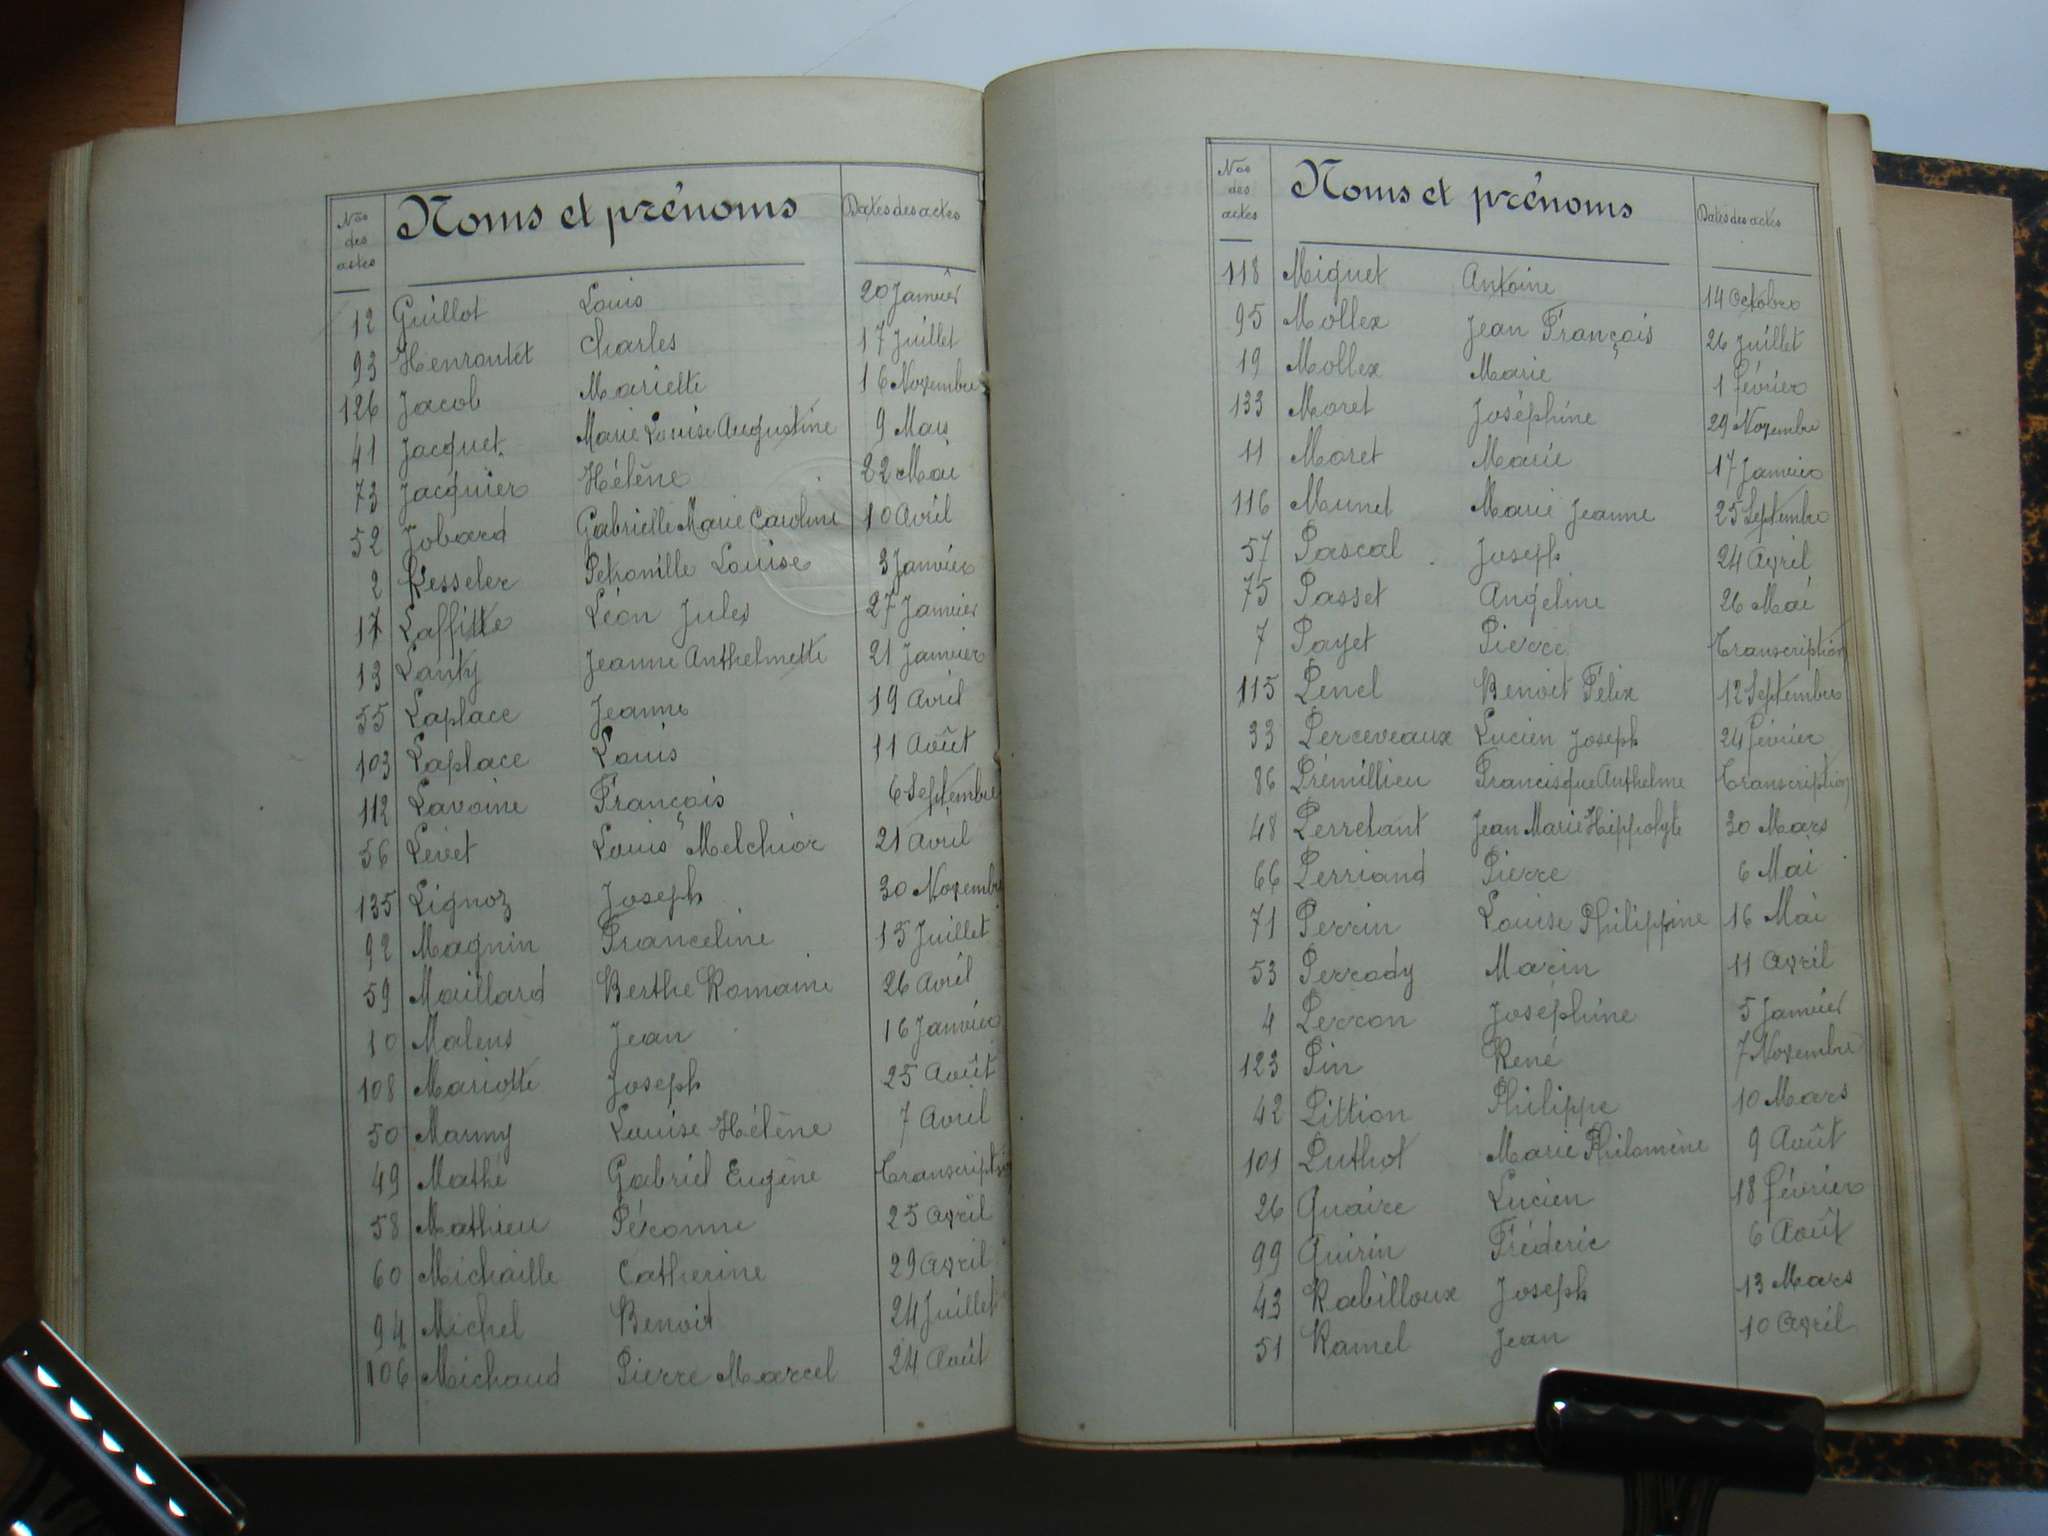 Nos des actes Noms et prénoms Dates des actes
12 Guillot Louis 20 Janvier
93 Henroutet Charles 17 Juillet
126 Jacob Mariette 16 Novembre
41 Jacquet Marie Louise Augustine 9 Mars
73 Jacquier Hélène 22 Mai
52 Jobard Gabrielle Marie Caroline 10 Avril
2 Kesseler Petronille Louise 3 Janvier
17 Laffitte Léon Jules 27 Janvier
13 Lanty Jeanne Anthelmette 21 Janvier
55 Laplace Jeanne 19 Avril
103 Laplace Louis 11 Août
112 Lavoine François 6 Septembre
56 Levet Louis Melchior 21 Avril
135 Lignoz Joseph 30 Novembre
92 Magnin Franceline 15 Juillet
59 Maillard Berthe Romaine 26 Avril
10 Malens Jean 16 Janvier
108 Mariotte Joseph 25 Août
50 Marmy Louise Hélène 7 Avril
49 Mathé Gabriel Eugène Transcription
58 Mathieu Péronne 25 Avril
60 Michaille Catherine 29 Avril
94 Michel Benoit 24 Juillet
106 Michaud Pierre Marcel 24 Août
Nos des actes Noms et prénoms Dates des actes
118 Miguet Antoine 14 Octobre
95 Mollex Jean François 26 Juillet
19 Mollex Marie 1 Février
133 Moret Joséphine 29 Novembre
11 Moret Marie 17 Janvier
116 Munet Marie Jeanne 25 Septembre
57 Pascal Joseph 24 Avril
75 Passet Angéline 26 Mai
7 Payet Pierre Transcription
115 Penel Benoit Félix 12 Septembre
33 Perceveaux Lucien Joseph 24 Février
86 Prémillieu Francisque Anthelme Transcription
48 Perretant Jean Marie Hippolyte 30 Mars
66 Perriand Pierre 6 Mai
71 Perrin Louise Philippine 16 Mai
53 Perrody Marin 11 Avril
4 Perron Joséphine 5 Janvier
123 Pin René 7 Novembre
42 Pittion Philippe 10 Mars
101 Puthot Marie Philomène 9 Août
26 Quaire Lucien 18 Février
99 Quirin Fréderic 6 Août
43 Rabilloux Joseph 13 Mars
51 Ramel Jean 10 Avril